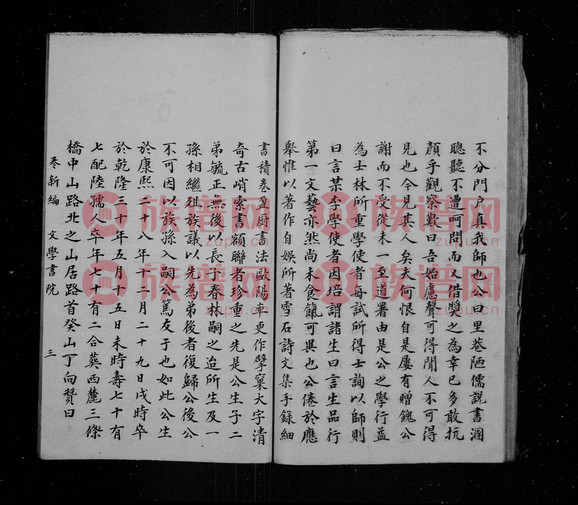 不分門戶真我師也公曰里巷陋儒說書溷
聰聽不遭呵問而又借獎之為幸已多敢抗
顏乎觀察歎曰吾始慮聲可得聞人不可得
見也今見其人矣夫何恨自是屢有贈餽公
謝而不受從未一至道署由是公之學行益
為士林所重學使者每試所得士詢以師則
曰言某李學使者因培謂諸生曰言生品行
第一文藝亦然尚未食餼可異也公倦於應
舉惟以著作自娛所著雪石詩文集手錄細
書積卷至厨書法歐陽率更作擘窠大字清
奇古峭索書額聯者珍重之先是公生子二
弟毓正無後以長子春林嗣之迨所生及一
孫相繼徂族議以先為弟後者復歸公後公
不可因以族孫入嗣公篤友于也如此公生
於康熙二十八年十二月二十九日戌時卒
於乾隆三十年五月十五日未時壽七十有
七配陸孺人卒年七十有二合葬西麓三條
橋中山路北之山居路首癸山丁向贊曰
卷新編 文學書院 三
族譜網